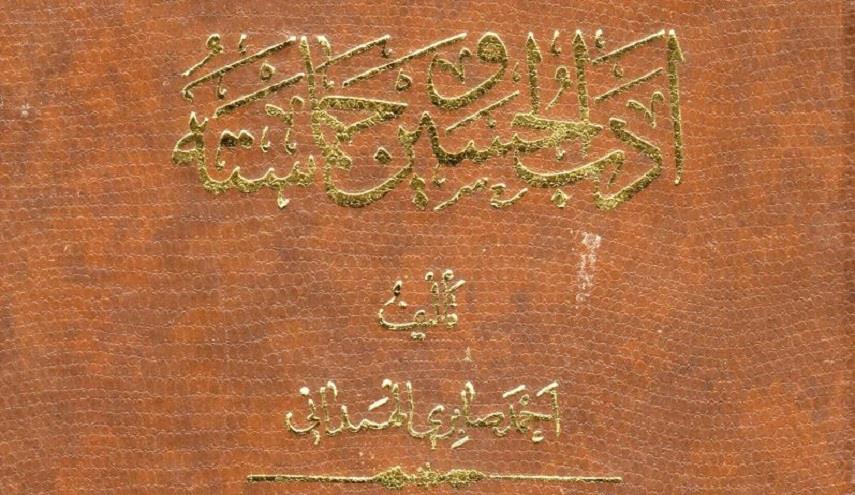 أدب الحسين وحماسته
تأليف
أحمد صابري الهمداني